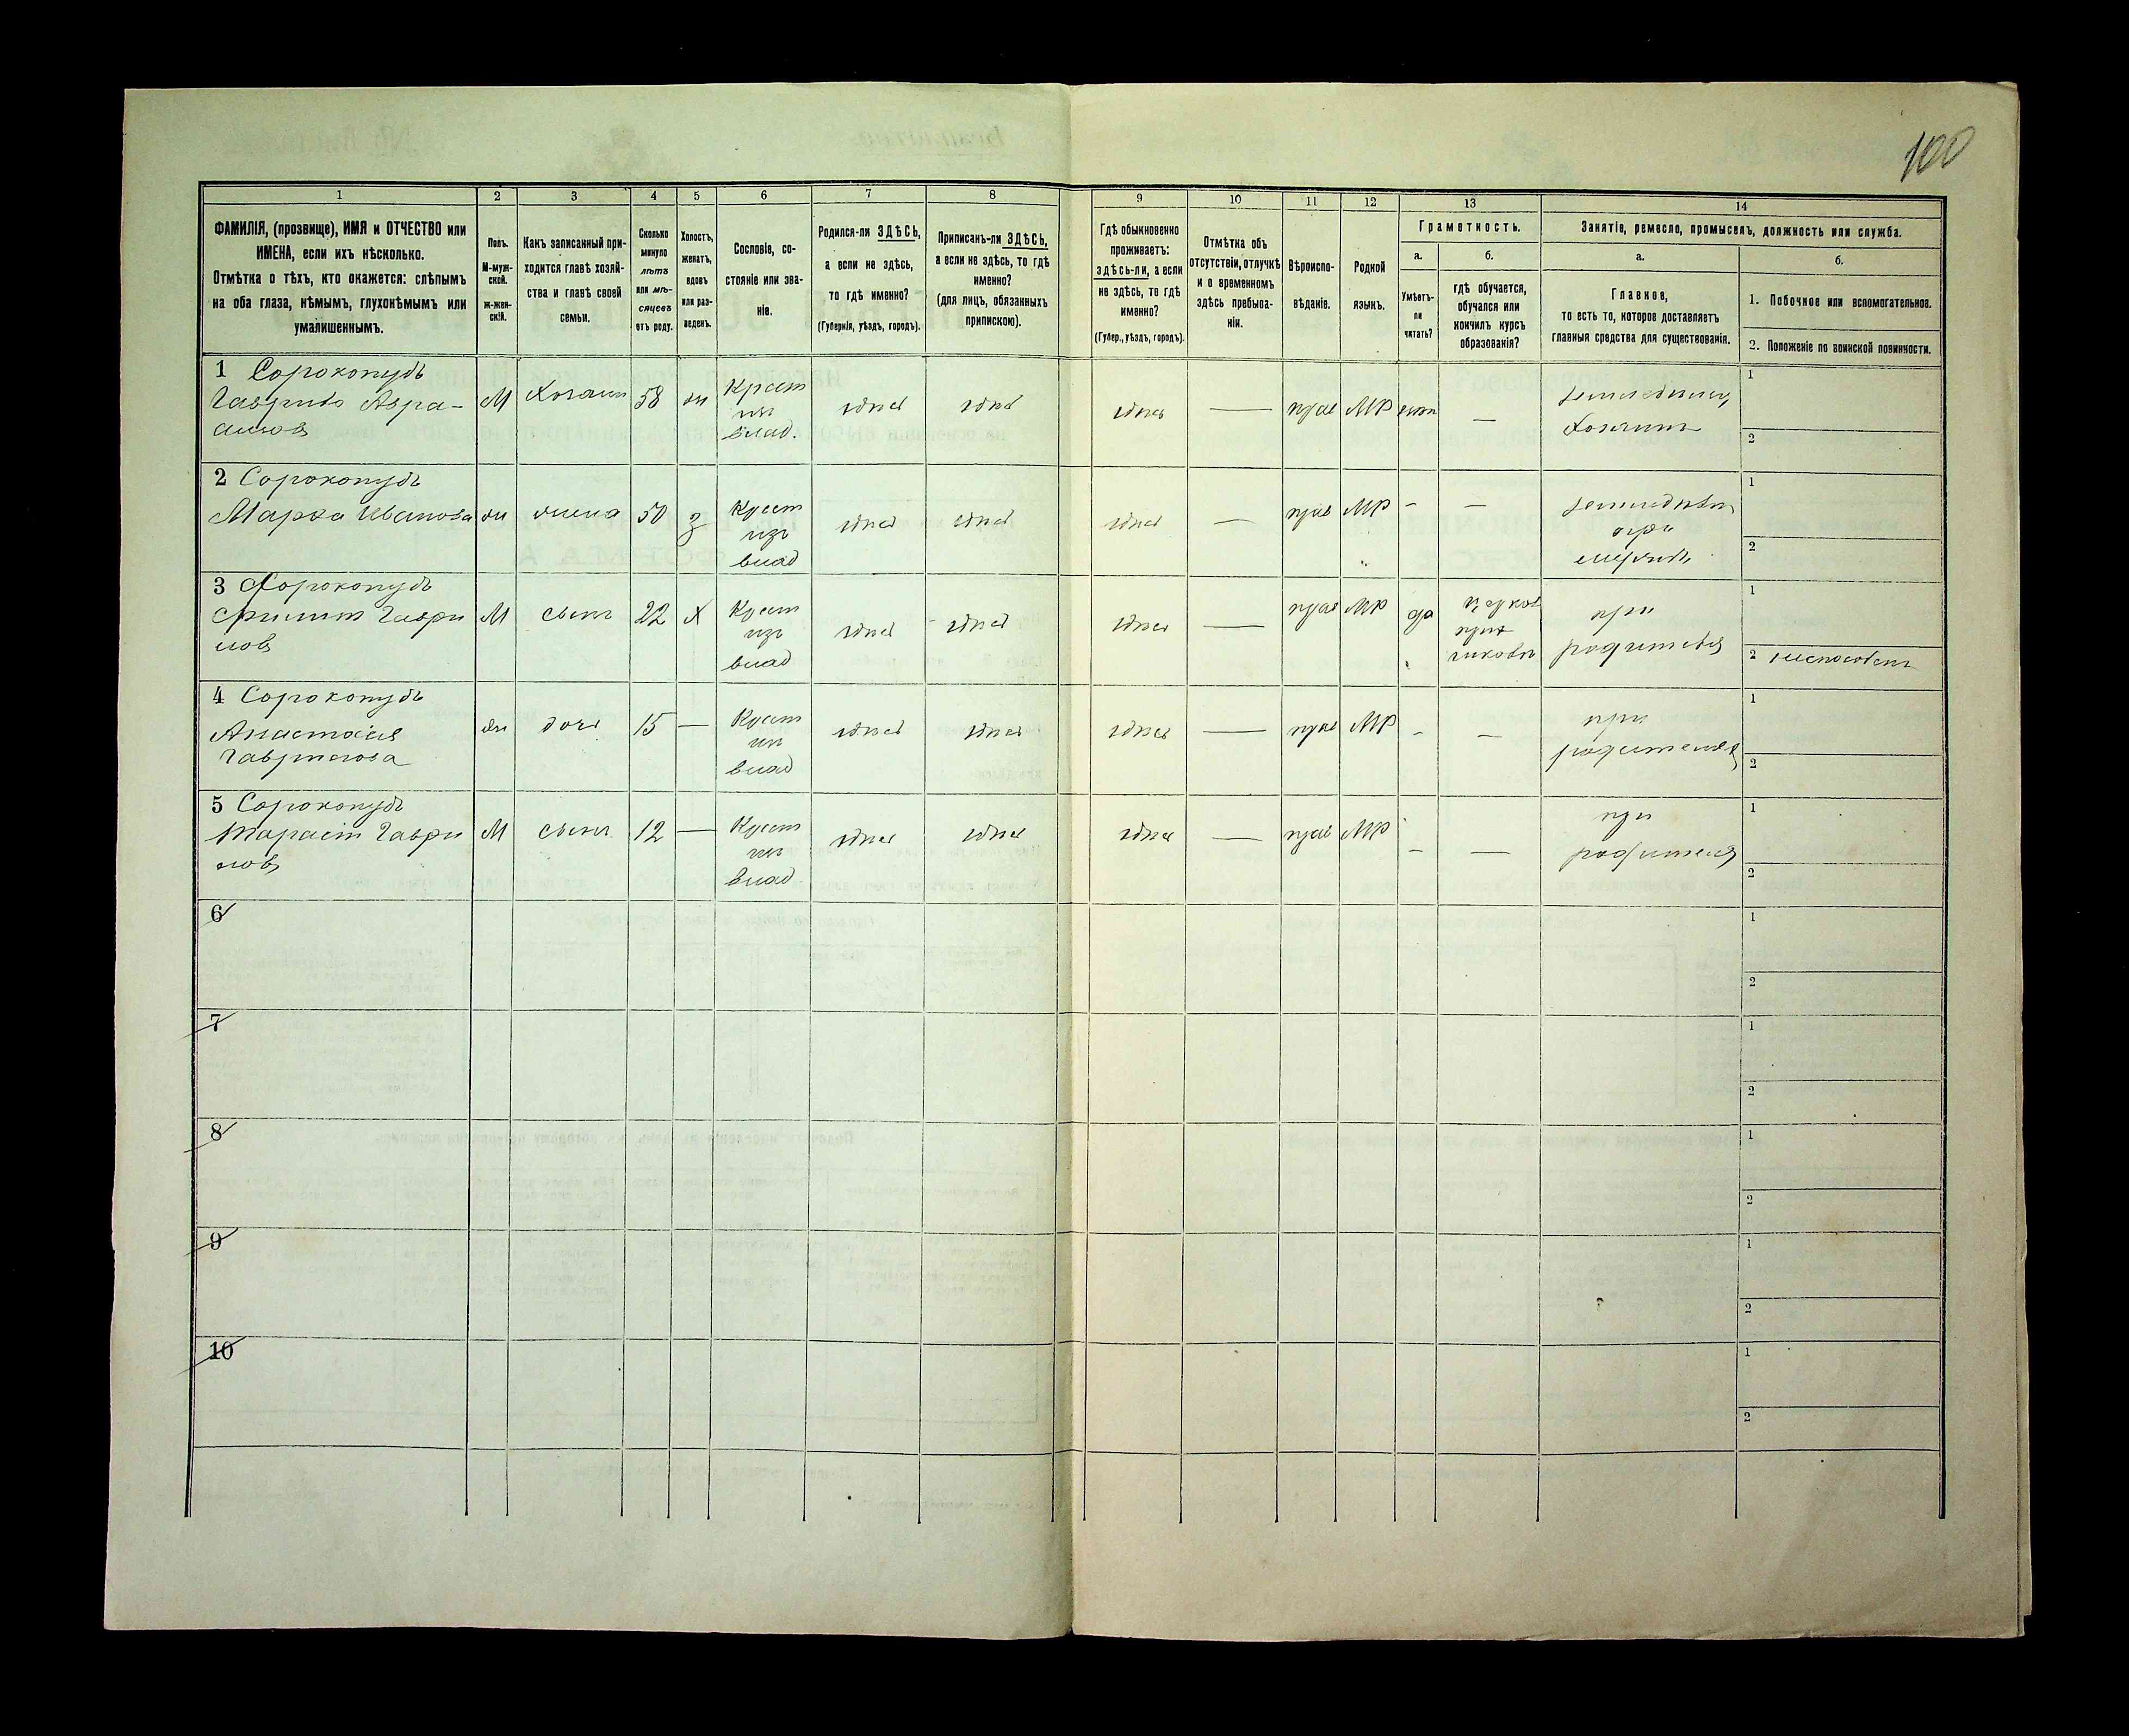 100
1
2
3
4
5
6
7
8
9
10
11
12
13
14
ФАМИЛІЯ, (прозвище), ИМЯ и ОТЧЕСТВО или
ИМЕНА, если ихъ нѣсколько.
Отмѣтка о тѣхъ, кто окажется: слѣпымъ
на оба глаза, нѣмымъ, глухонѣмымъ или
умалишеннымъ.
Полъ.
М-муж-
ской.
ж-жен-
скій.
Какъ записанный при-
ходится главѣ хозяй-
ства и главѣ своей
семьи.
Сколько
минуло
лѣтъ
или мѣ-
сяцевъ
отъ роду.
Холостъ,
женатъ,
вдовъ
или раз-
веденъ.
Сословіе, со-
стояніе или зва-
ніе.
Родился-ли ЗДѢСЬ,
а если не здѣсь,
то гдѣ именно?
(Губернія, уѣздъ, городъ).
Приписанъ-ли ЗДѢСЬ,
а если не здѣсь, то гдѣ
именно?
(для лицъ, обязанныхъ
припискою).
Гдѣ обыкновенно
проживаетъ:
здѣсь-ли, а если
не здѣсь, то гдѣ
именно?
(Губер., уѣздъ, городъ).
Отмѣтка объ
отсутствіи, отлучкѣ
и о временномъ
здѣсь пребыва-
ніи.
Вѣроиспо-
вѣданіе.
Родной
языкъ.
Грамотность.
а.
б.
Умѣетъ-
ли
читать?
гдѣ обучается,
обучался или
кончилъ курсъ
образованія?
Занятіе, ремесло, промыселъ, должность или служба.
а.
б.
Главное,
то есть то, которое доставляетъ
главныя средства для существованія.
1. Побочное или вспомогательное.
2. Положеніе по воинской повинности.
1 Сорокопудъ
Гаврило Авра-
амовъ
М
Хозяинъ
58
жн
Крест
изъ
влад.
здѣсь
здѣсь
здѣсь
—
прав
МР
—
Хозяинъ
1
2
2 Сорокопудъ
Марѳа Иванова
жн
жена
50
з
Крест
изъ
влад
здѣсь
здѣсь
здѣсь
—
прав
МР
-
—
при
1
2
3 Сорокопудъ
Филипъ Гаври
ловъ
М
сынъ
22
х
Крест
изъ
влад
здѣсь
здѣсь
здѣсь
—
прав
МР
да
при
родителя
1
2 неспособенъ
4 Сорокопудъ
Анастасія
Гаврилова
жн
дочь
15
—
Крест
изъ
влад
здѣсь
здѣсь
здѣсь
—
прав
МР
-
—
при
родителяхъ
1
2
5 Сорокопудъ
Тарасій Гаври
ловъ
М
сынъ
12
—
Крест
изъ
влад
здѣсь
здѣсь
здѣсь
—
прав
МР
-
—
при
родителя
1
2
6
1
2
7
1
2
8
1
2
9
1
2
10
1
2